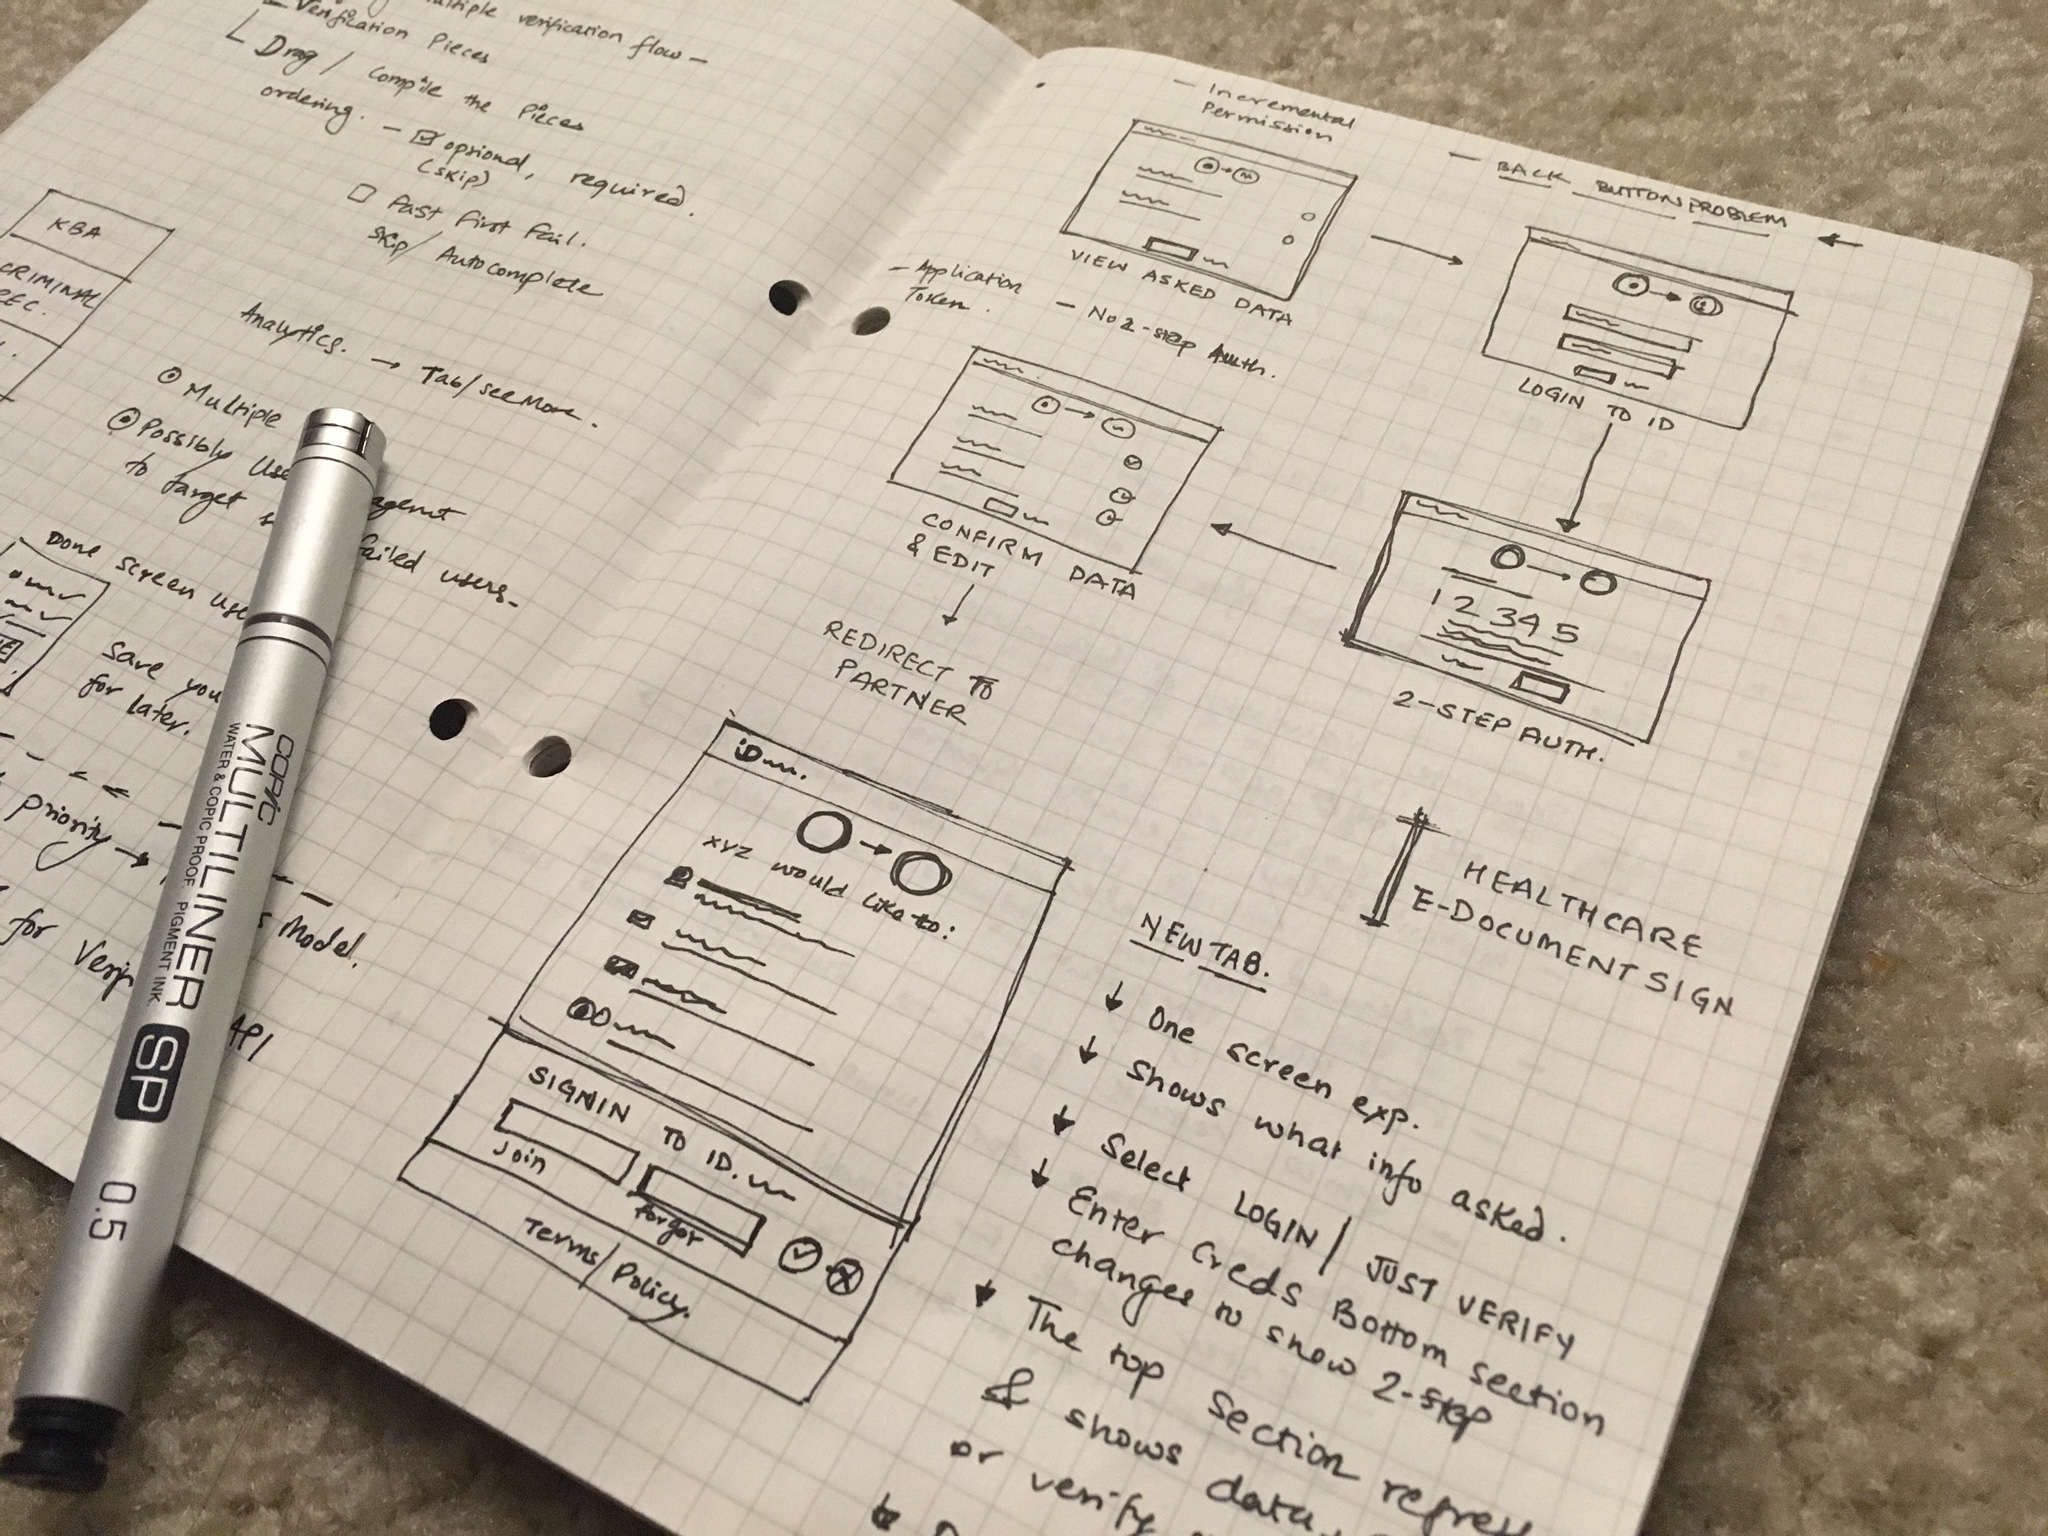 multiple verification flow -
Verification Pieces
Drag / Compile the Pieces
ordering.
- optional, required.
(skip)
Fast First Fail.
skip/ Autocomplete
KBA
CRIMINAL
REC.
Analytics. → Tab/see More.
Multiple
Possibly
to target
failed users.
Done screen
Save you
for later.
priority →
Model.
for
API
COPIC
MULTILINER SP 0.5
WATER & COPIC PROOF. PIGMENT INK.
- Incremental
Permission
- BACK BUTTON PROBLEM ←
VIEW ASKED DATA
- Application
Token.
- No 2-step Auth.
LOGIN TO ID
CONFIRM DATA
& EDIT
1 2 3 4 5
2-STEP AUTH.
REDIRECT TO
PARTNER
ID
XYZ would like to:
SIGNIN TO ID.
Join
forgot
Terms/Policy.
HEALTHCARE
E-DOCUMENT SIGN
NEW TAB.
↓ One screen exp.
↓ Shows what info asked.
↓ Select LOGIN/ JUST VERIFY
↓ Enter Creds Bottom section
changes to show 2-step
↓ The top section
& shows data
or verify